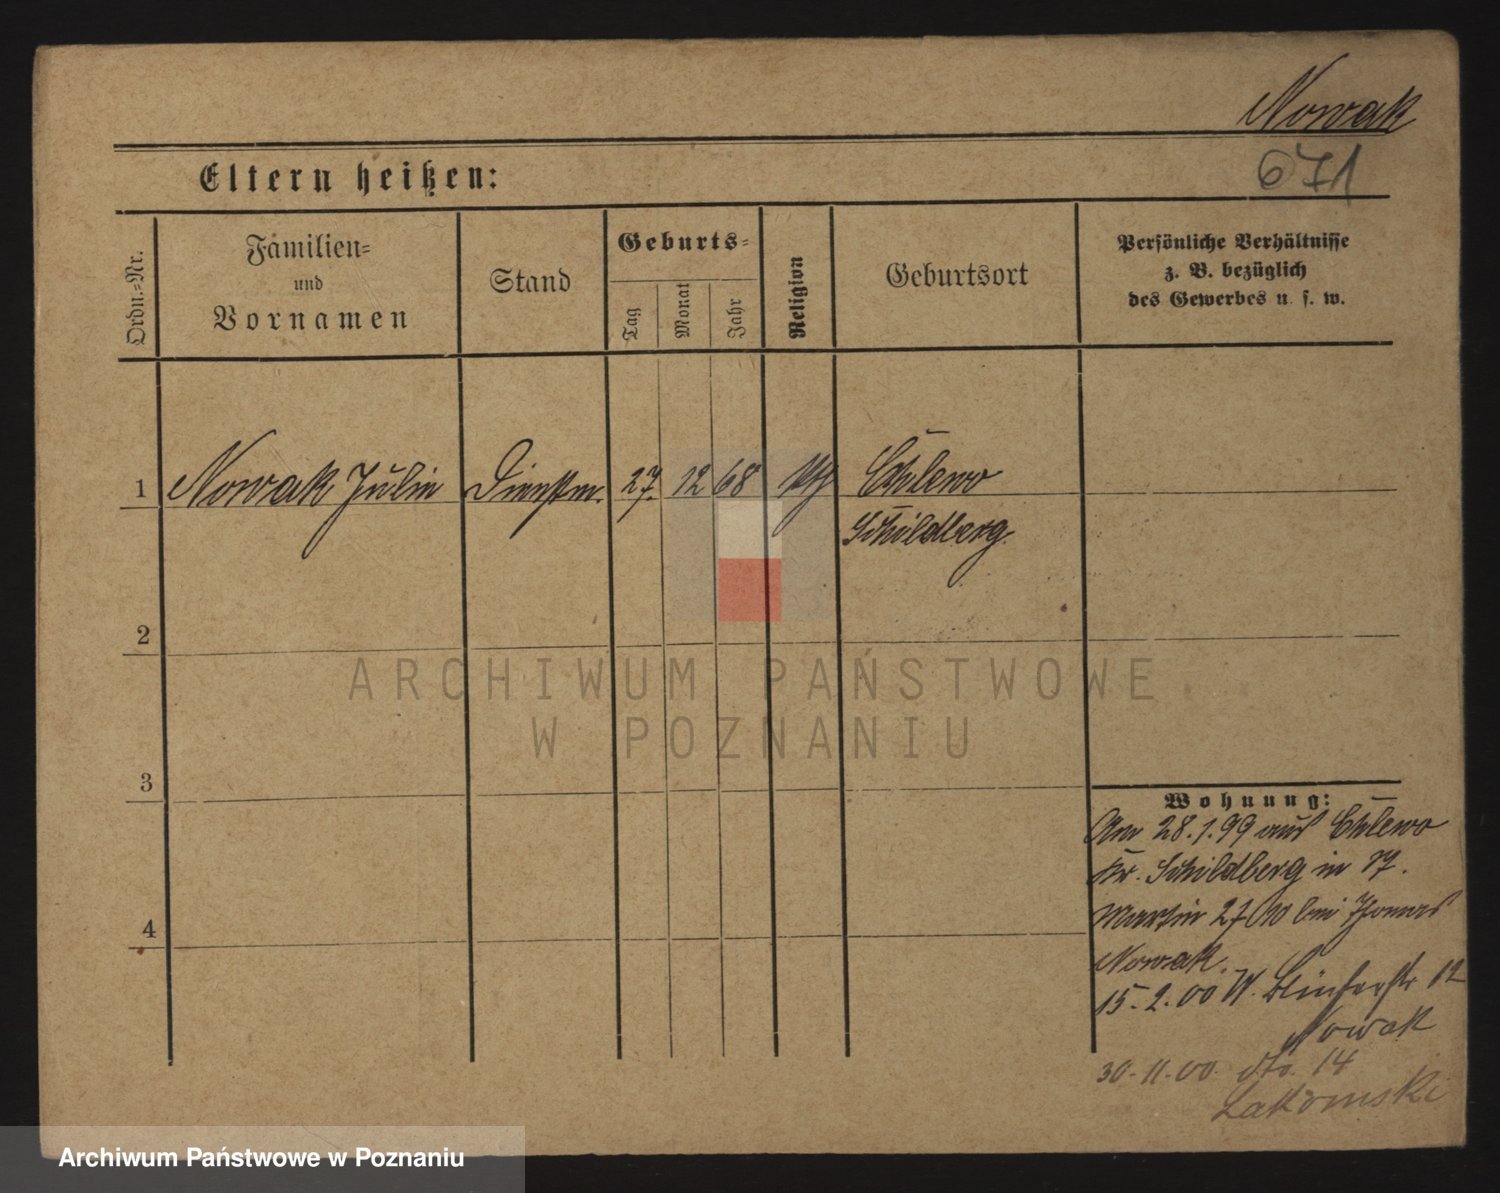 Nowak
671
Eltern heißen:
Ordn.-Nr.
Familien-
und
Vornamen
Stand
Geburts-
Tag
Monat
Jahr
Religion
Geburtsort
Persönliche Verhältnisse
z. B. bezüglich
des Gewerbes u. s. w.
1 Nowak Julie Dienstm. 27. 12 68 Chlewo
Schildberg.
2
3
4
Wohnung:
Am 28.1.99 aus Chlewo
Kr. Schildberg in
Martin 27 bei Thomas
Nowak.
15.2.00 W. 12
Nowak
30.11.00 dto. 14
Lakomski
ARCHIWUM PAŃSTWOWE
W POZNANIU
Archiwum Państwowe w Poznaniu